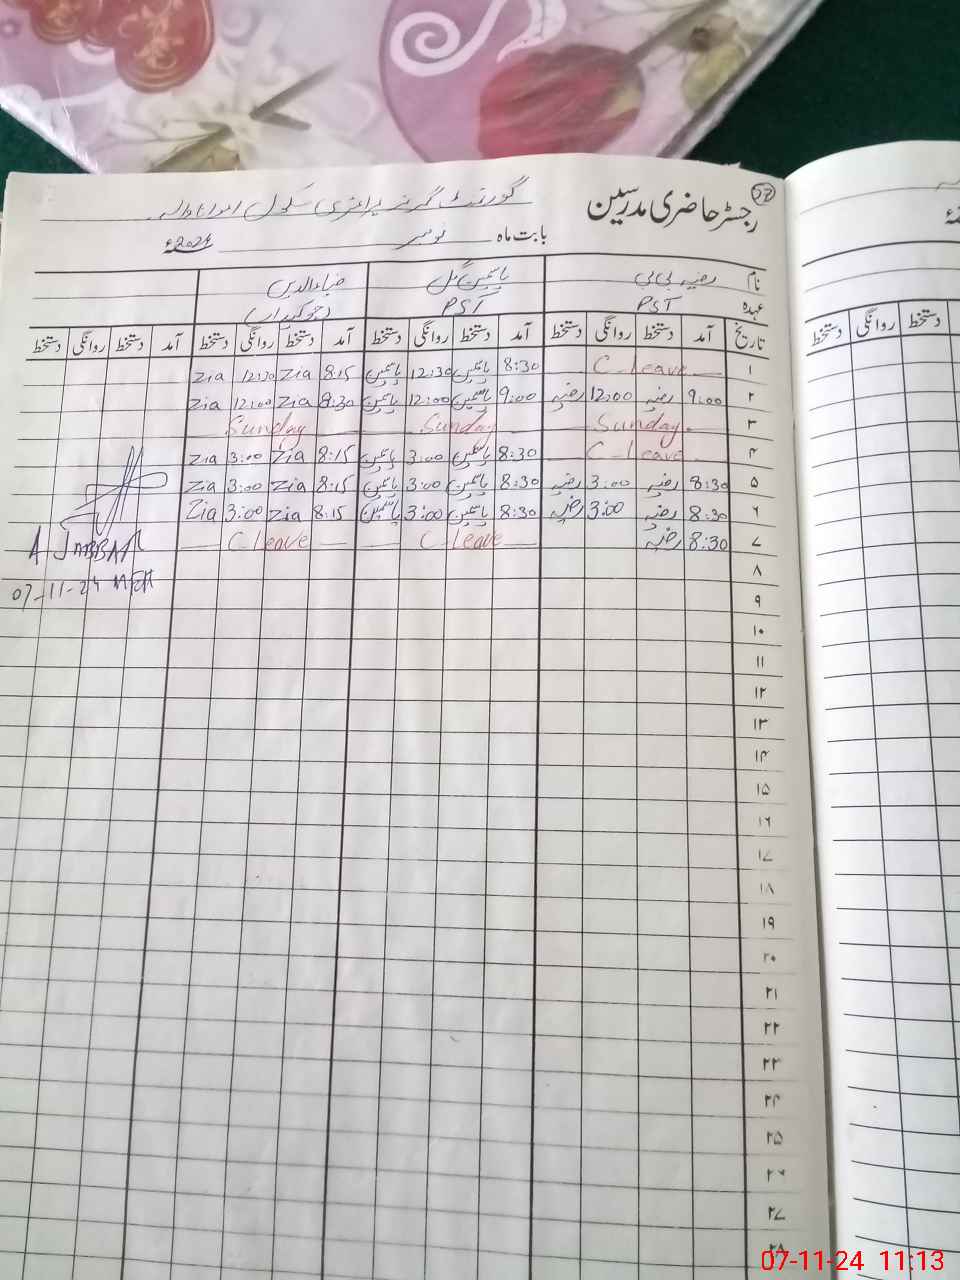 57
رجسٹر حاضری مدرسین
گورنمنٹ گرلز پرائمری سکول
بابت ماہ نومبر 2024ء
نام رضیہ بی بی یاسمین گل ضیاءالدین
عہدہ PST PST (چوکیدار)
تاریخ آمد دستخط روانگی دستخط آمد دستخط روانگی دستخط آمد دستخط روانگی دستخط آمد دستخط روانگی دستخط
۱ C-leave 8:30 یاسمین 12:30 یاسمین 8:15 Zia 12:30 Zia
۲ 9:00 رضیہ 12:00 رضیہ 9:00 یاسمین 12:00 یاسمین 8:30 Zia 12:00 Zia
۳ Sunday Sunday Sunday
۴ C-leave 8:30 یاسمین 3:00 یاسمین 8:15 Zia 3:00 Zia
۵ 8:30 رضیہ 3:00 رضیہ 8:30 یاسمین 3:00 یاسمین 8:15 Zia 3:00 Zia
۶ 8:30 رضیہ 3:00 رضیہ 8:30 یاسمین 3:00 یاسمین 8:15 Zia 3:00 Zia
۷ 8:30 رضیہ C-leave C-leave
A JABBAR
07-11-24
۸
۹
۱۰
۱۱
۱۲
۱۳
۱۴
۱۵
۱۶
۱۷
۱۸
۱۹
۲۰
۲۱
۲۲
۲۳
۲۴
۲۵
۲۶
۲۷
۲۸
دستخط روانگی دستخط
07-11-24 11:13